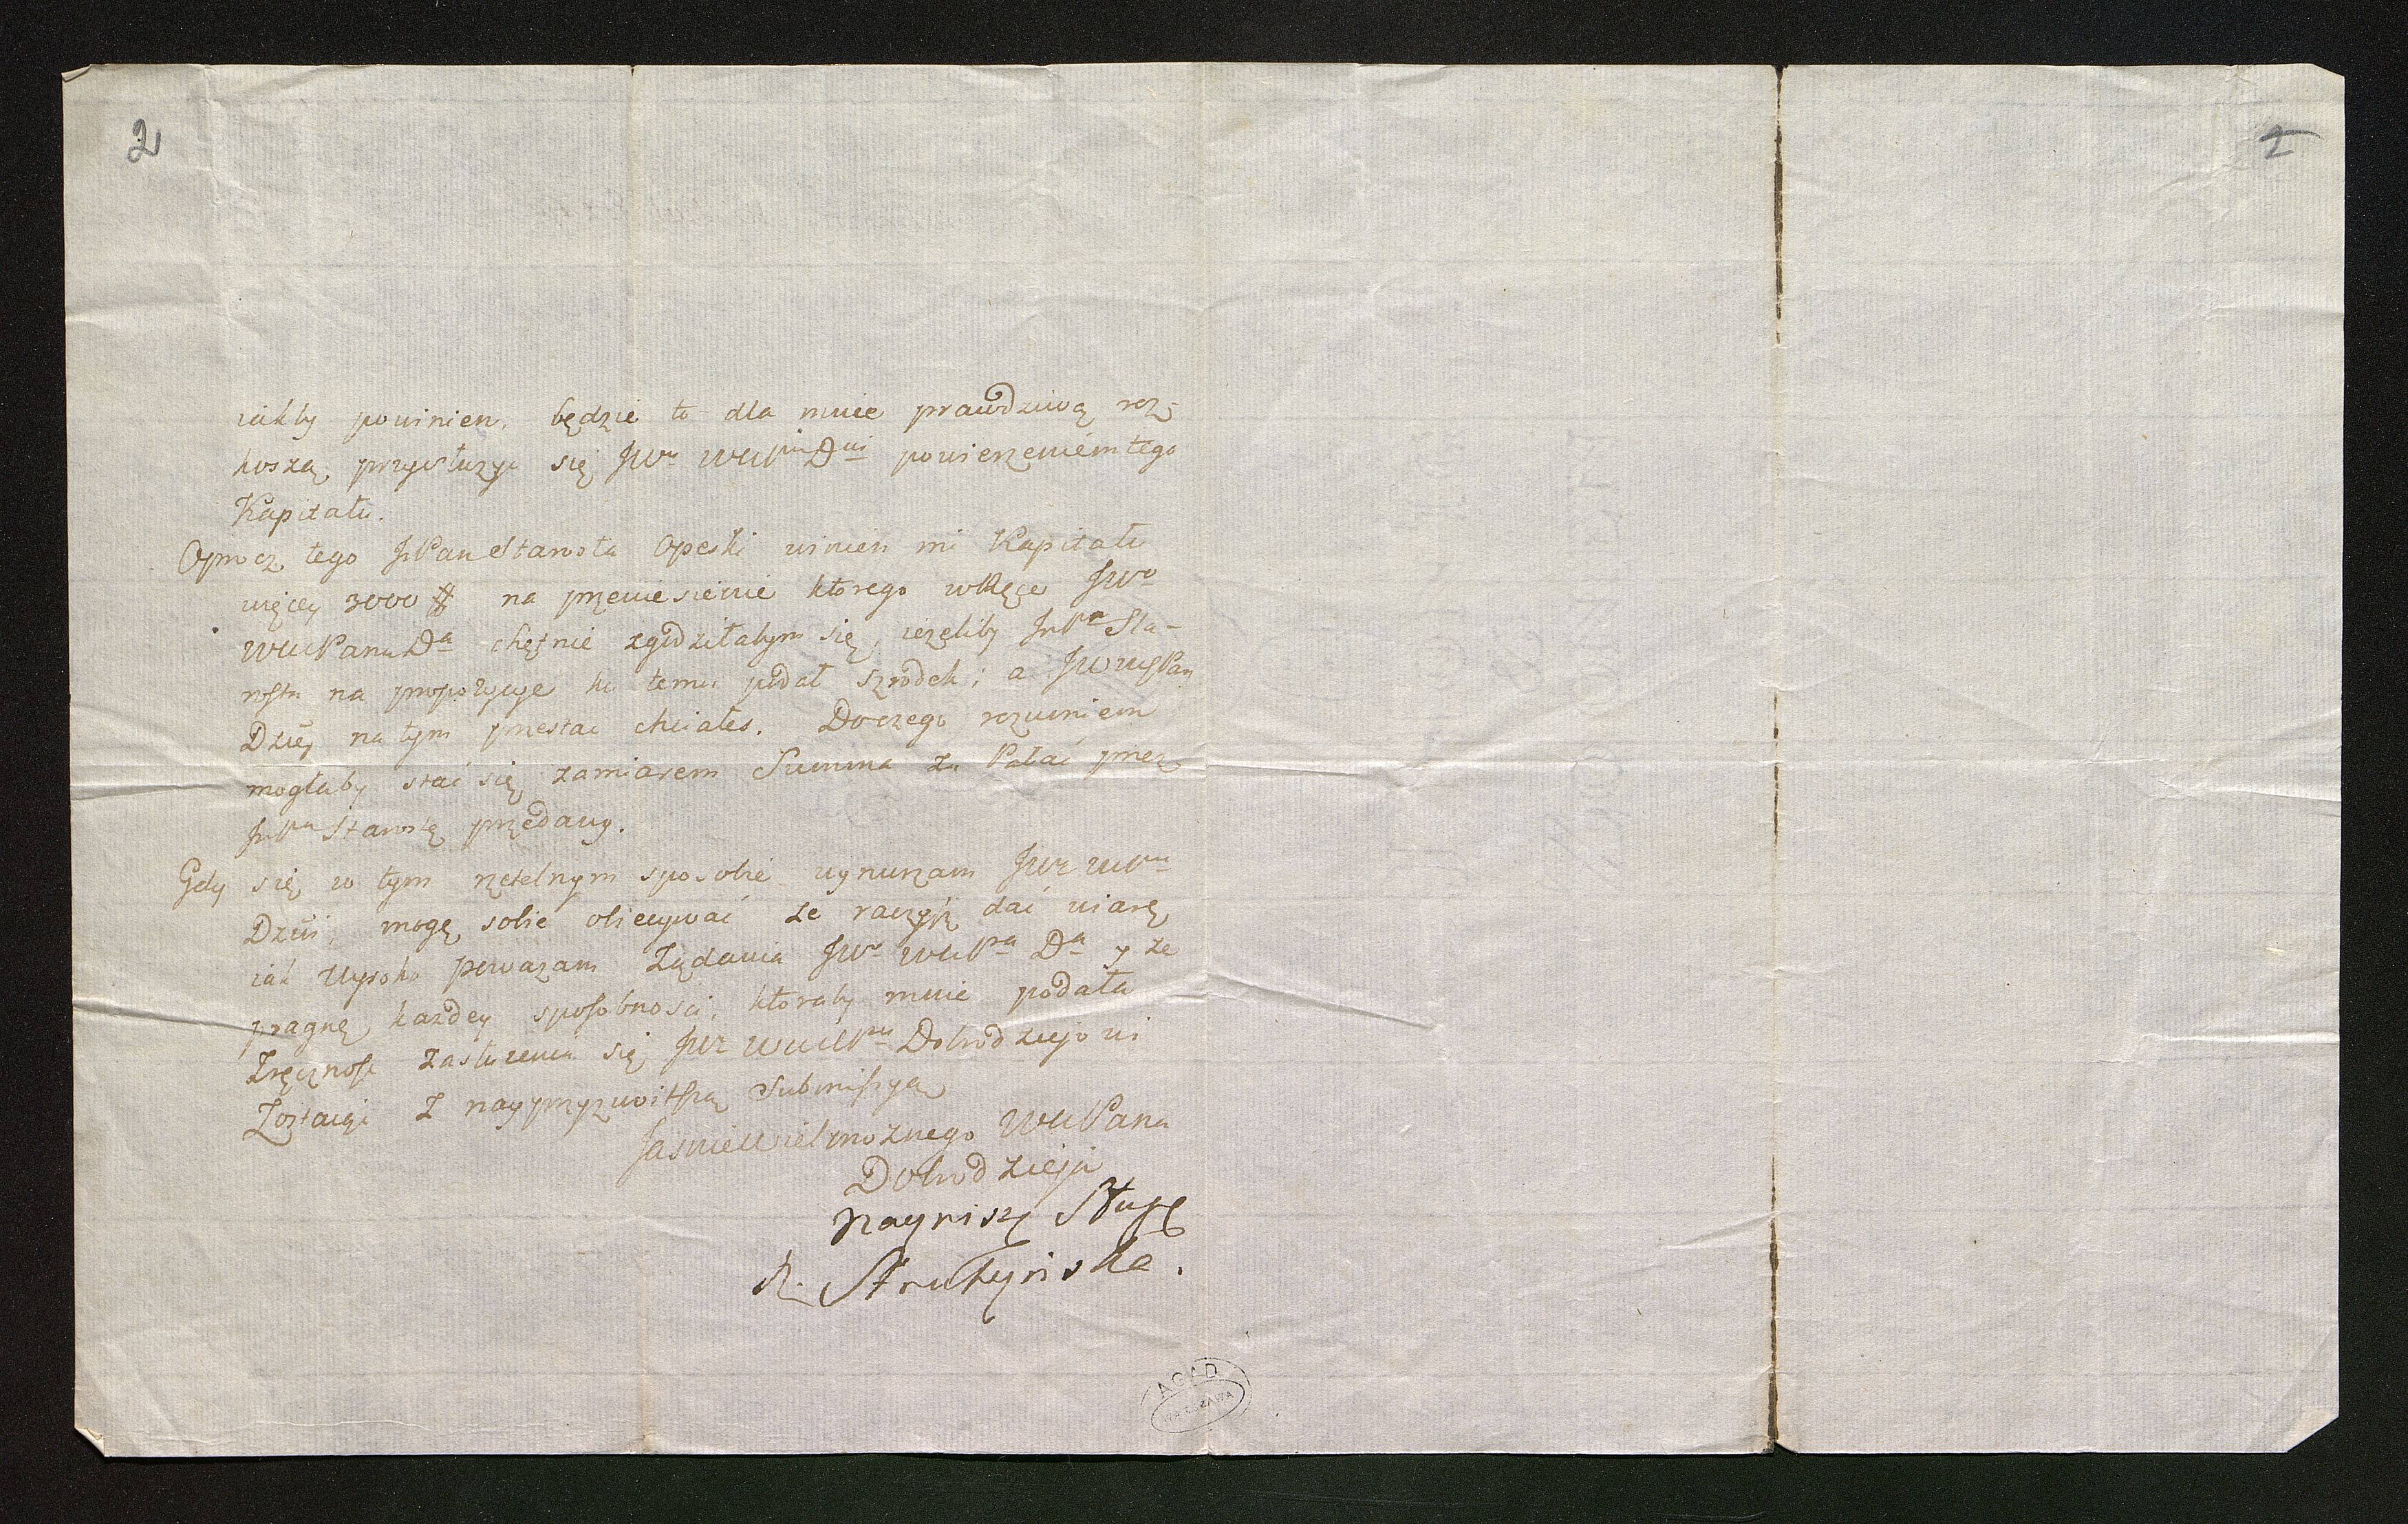 2
2
iakby powinien, będzie to dla mnie prawdziwą roz-
koszą, przysłużyc się JWu WMPnu Dui powierzeniem tego
Kapitału.
Oprocz tego JPan Starosta Opeski winien mi Kapitału
więcey 3000 # na przeniesienie ktorego w Ręce JWo
WMPana Da chętnie zgodziłabym się, ieżeliby JmPn Sta-
rosta na propozycye ku temu podał szrodek; a JWWMPan
Dziey na tym przestac chciałes. Do czego rozumiem
mogłaby stać się zamiarem Summa za Pałac przez
JmPn Starostę przedany.
Gdy się w tym rzetelnym sposobie wynurzam JWz WMPnu
Dzui, mogę sobie obiecywać że raczysz dać wiarę
iak wysoko poważam Żądania JWo WMPna Da y że
pragnę każdey sposobnosci, ktoraby mnie podała
Zręcznosc zasłużenia się JWz WMMPnu Dobrodziejowi
Zostaięc z nayprzyzwoitszą Submissyą
Jasnie Wielmożnego WMPana
Dobrodzieja
Nayniszą Sługą
Strutyńska.
AGAD
WARSZAWA